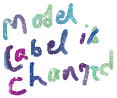 Model
Label is
Changed